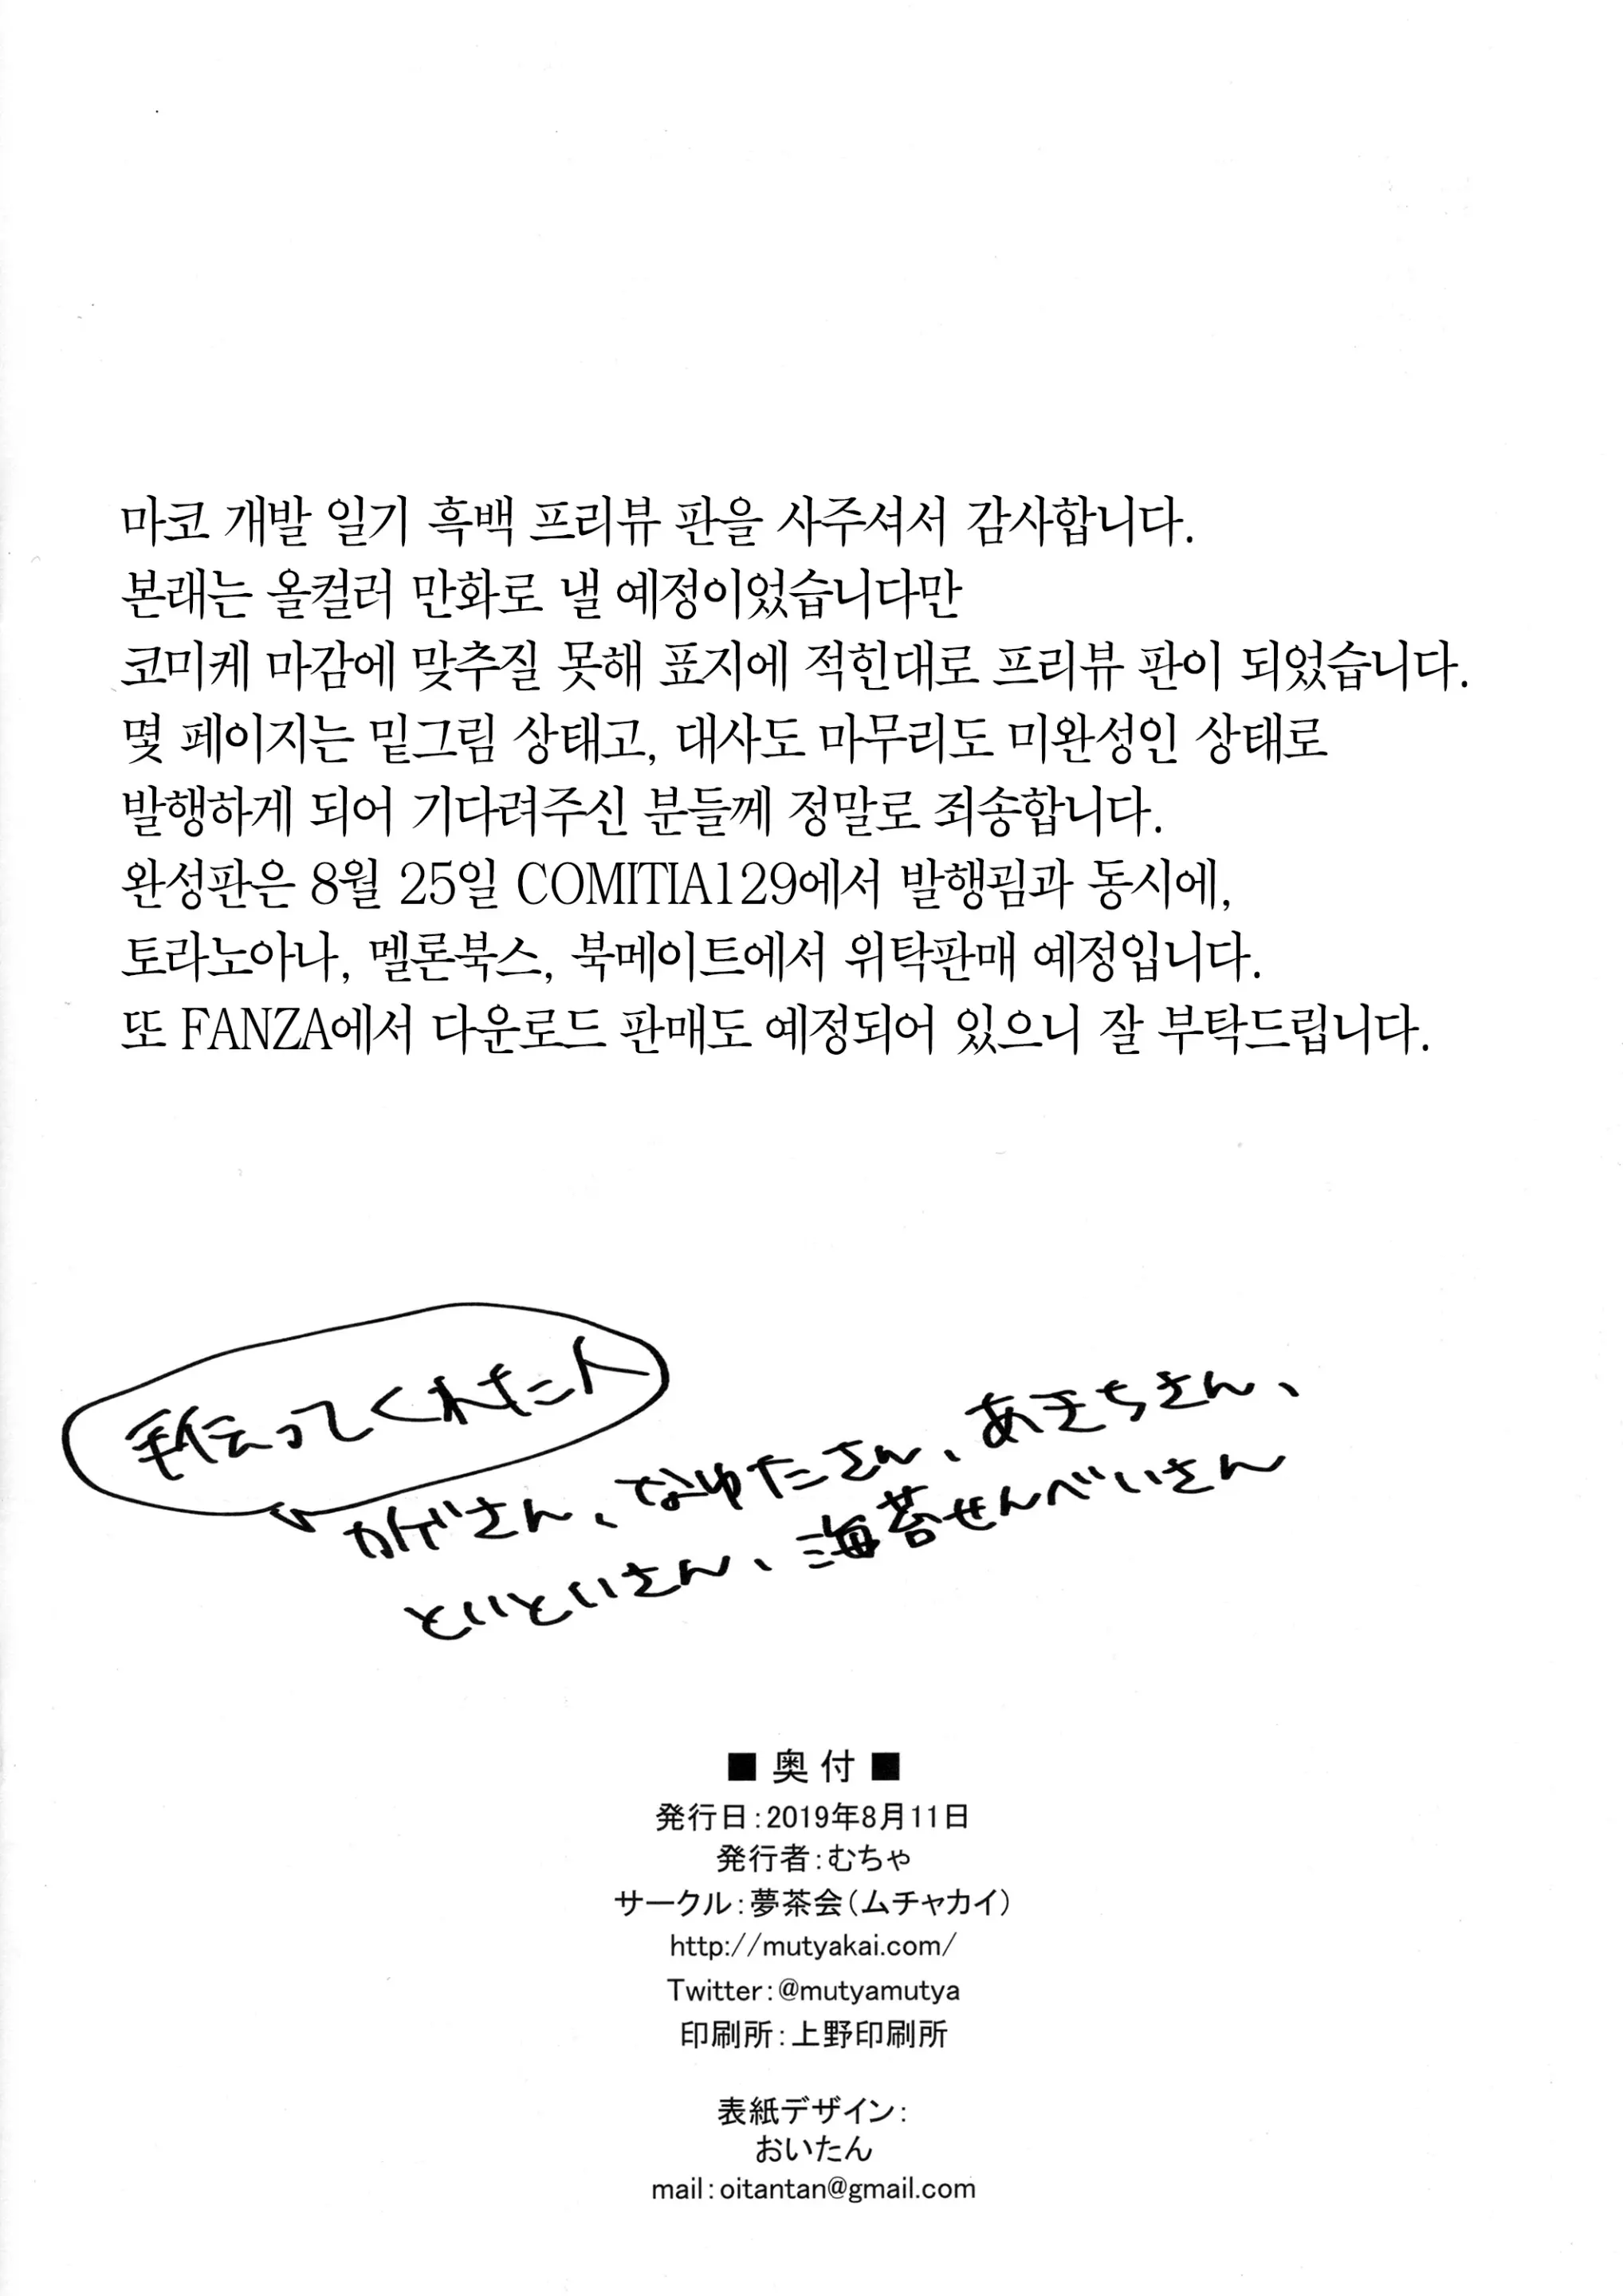 마코 개발 일기 흑백 프리뷰 판을 사주셔서 감사합니다.
본래는 올컬러 만화로 낼 예정이었습니다만
코미케 마감에 맞추질 못해 표지에 적힌대로 프리뷰 판이 되었습니다.
몇 페이지는 밑그림 상태고, 대사도 마무리도 미완성인 상태로
발행하게 되어 기다려주신 분들께 정말로 죄송합니다.
완성판은 8월 25일 COMITIA129에서 발행굄과 동시에,
토라노아나, 멜론북스, 북메이트에서 위탁판매 예정입니다.
또 FANZA에서 다운로드 판매도 예정되어 있으니 잘 부탁드립니다.
手伝ってくれた人
かげさん、なゆたさん、あきちさん、
といといさん、海苔せんべいさん
■ 奥付 ■
発行日:2019年8月11日
発行者:むちゃ
サークル:夢茶会(ムチャカイ)
http://mutyakai.com/
Twitter:@mutyamutya
印刷所:上野印刷所
表紙デザイン:
おいたん
mail:oitantan@gmail.com